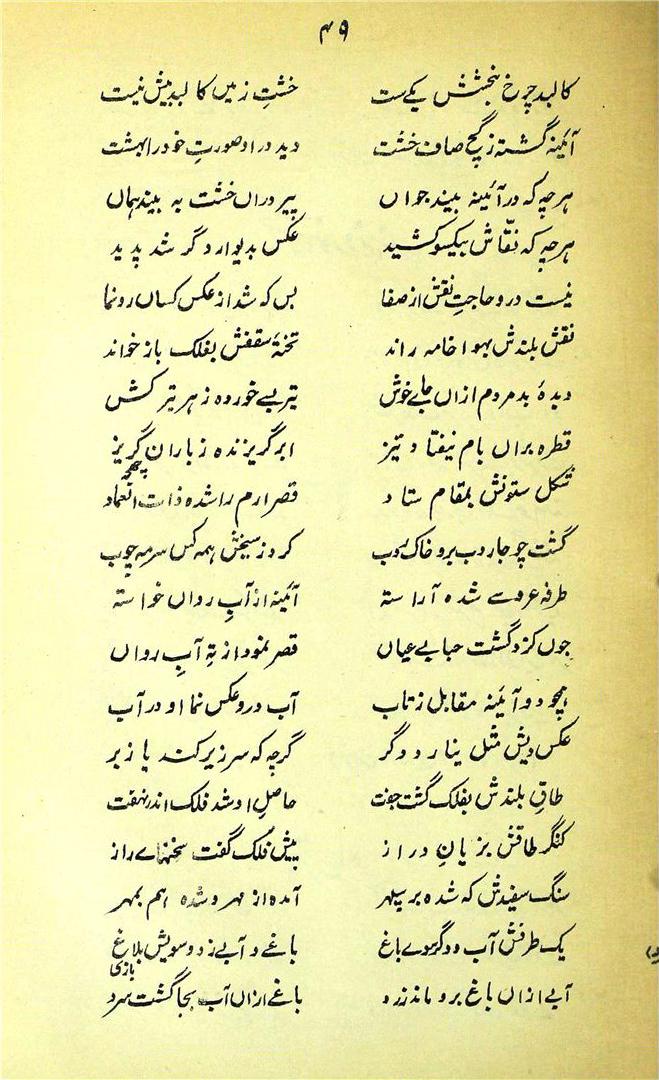 ۴۹
کالبد چرخ نجشتش یکے ست خشتِ زمیں کالبد بیش نیست
آئینہ گشتہ ز گچ صاف خشت دید در او صورتِ خود را بہشت
ہرچہ کہ در آئینہ بیند جواں پیر دراں خشت بہ بیند ہماں
ہرچہ کہ نقّاش بیکسو کشید عکس بدیوار دگر شد پدید
نیست درو حاجتِ نقش از صفا بس کہ شد از عکس کساں رونما
نقش بلندش بہوا خامہ راند تختۂ سقفش بفلک باز خواند
دیدۂ بد مردم ازاں جاے خوش تیر بسے خوردہ ز ہر تیر کش
قطرہ براں بام نیفتا د تیز ابر گریزندہ ز باران گریز
شکل ستونش بمقام ستا د قصر ارم را شدہ ذات العماد
گشت چو جاروب برو خاک روب کرد ز سیخش ہمہ کس سرمہ چوب
طرفہ عروسے شدہ آراستہ آئینہ از آبِ رواں خواستہ
چوں کزد گشت حبابے عیاں قصر نمود از تہِ آبِ رواں
ہمچو دو آئینہ مقابل ز تاب آب درو عکس نما او در آب
عکس دیش مثل بنا رد دگر گرچہ کہ سر زیر کند پا زبر
طاقِ بلندش بفلک گشت جفت حاصلِ او شد فلک اندر نہفت
کنگر طاقش بزبانِ دراز پیش فلک گفت سخنہاے راز
سنگ سفیدش کہ شدہ بر سپہر آمدہ از مہر و شدہ ہم بمہر
یک طرفش آب و دگر سوے باغ باغے و آبے ز دو سویش بلاغ
آبے ازاں باغ برو ماند زرد باغے ازاں آب بجا گشت سرد
بازی